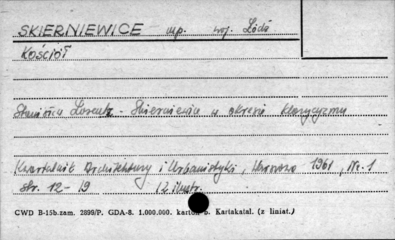 SKIERNIEWICE mp. woj. Łódź
KOŚCIÓŁ
Stanisław Lorentz - Skierniewice w okresie klasycyzmu
Kwartalnik Architektury i Urbanistyki, Warszawa 1961, Nr. 1
str. 12-19 12 ilustr.
CWD B-15b.zam. 2899/P. GDA-8. 1.000.000. karton b. Kartakatal. (z liniat.)